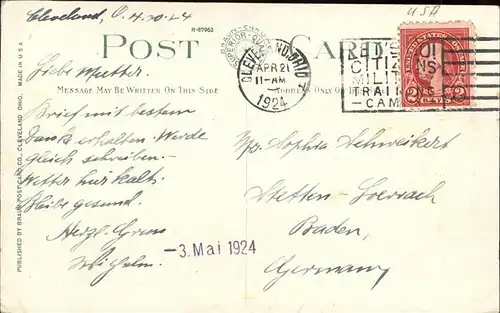 Cleveland, O. 4.20.24
R-87963
USA
POST CARD
MESSAGE MAY BE WRITTEN ON THIS SIDE
ADDRESS ONLY ON THIS SIDE
CLEVELAND, OHIO
APR 21
11-AM
1924
LET'S GO!
CITIZENS
MILITARY
TRAINING
-CAMP
UNITED STATES POSTAGE
2 CENTS 2
Liebe Mutter.
Brief mit bestem
Dank erhalten. Werde
gleich schreiben.-
Wetter hier kalt.
Bleibe gesund.
Herzl. Gruss
Wilhelm.
-3. Mai 1924
Sophia Schweikert
Stetten-Loerrach
Baden,
Germany
PUBLISHED BY BRAUN POST CARD CO., CLEVELAND, OHIO.
MADE IN U.S.A.